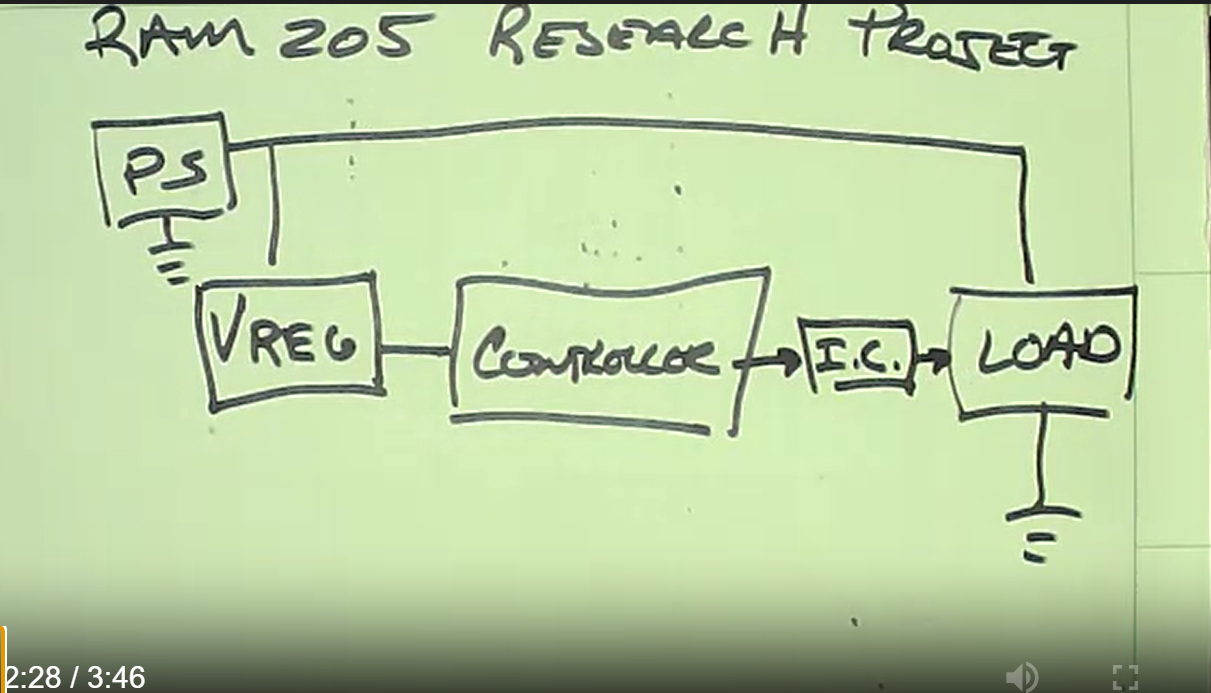 RAM 205 RESEARCH PROJECT
PS
VREG
CONTROLLOR
I.C.
LOAD
2:28 / 3:46